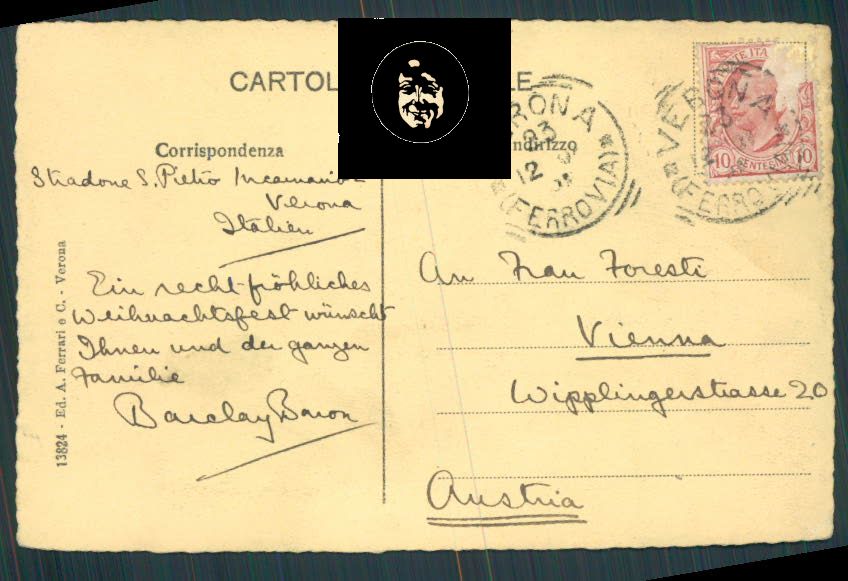 CARTOL
Corrispondenza
ndirizzo
Stradone S. Pietro Incarnario
Verona
Italien
Ein recht fröhliches
Weihnachtsfest wünscht
Ihnen und der ganzen
Familie
Barclay Baron
13824 - Ed. A. Ferrari e C. - Verona
An Frau Foresti
Vienna
Wipplingerstrasse 20
Austria
RONA
23
12
(FERROVIA)
VERONA
(FERROVIA
10
CENTESIMI
10